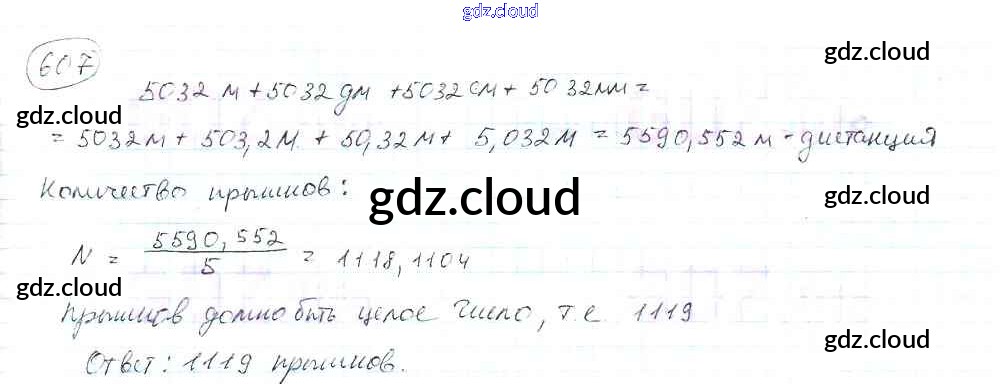 gdz.cloud
607
gdz.cloud
5032 м + 5032 дм + 5032 см + 5032 мм =
gdz.cloud
= 5032 м + 503,2 м + 50,32 м + 5,032 м = 5590,552 м - дистанция
gdz.cloud
Количество прыжков:
gdz.cloud
gdz.cloud
N = 5590,552 / 5 = 1118,1104
gdz.cloud
Прыжков должно быть целое число, т.е 1119
gdz.cloud
Ответ: 1119 прыжков.